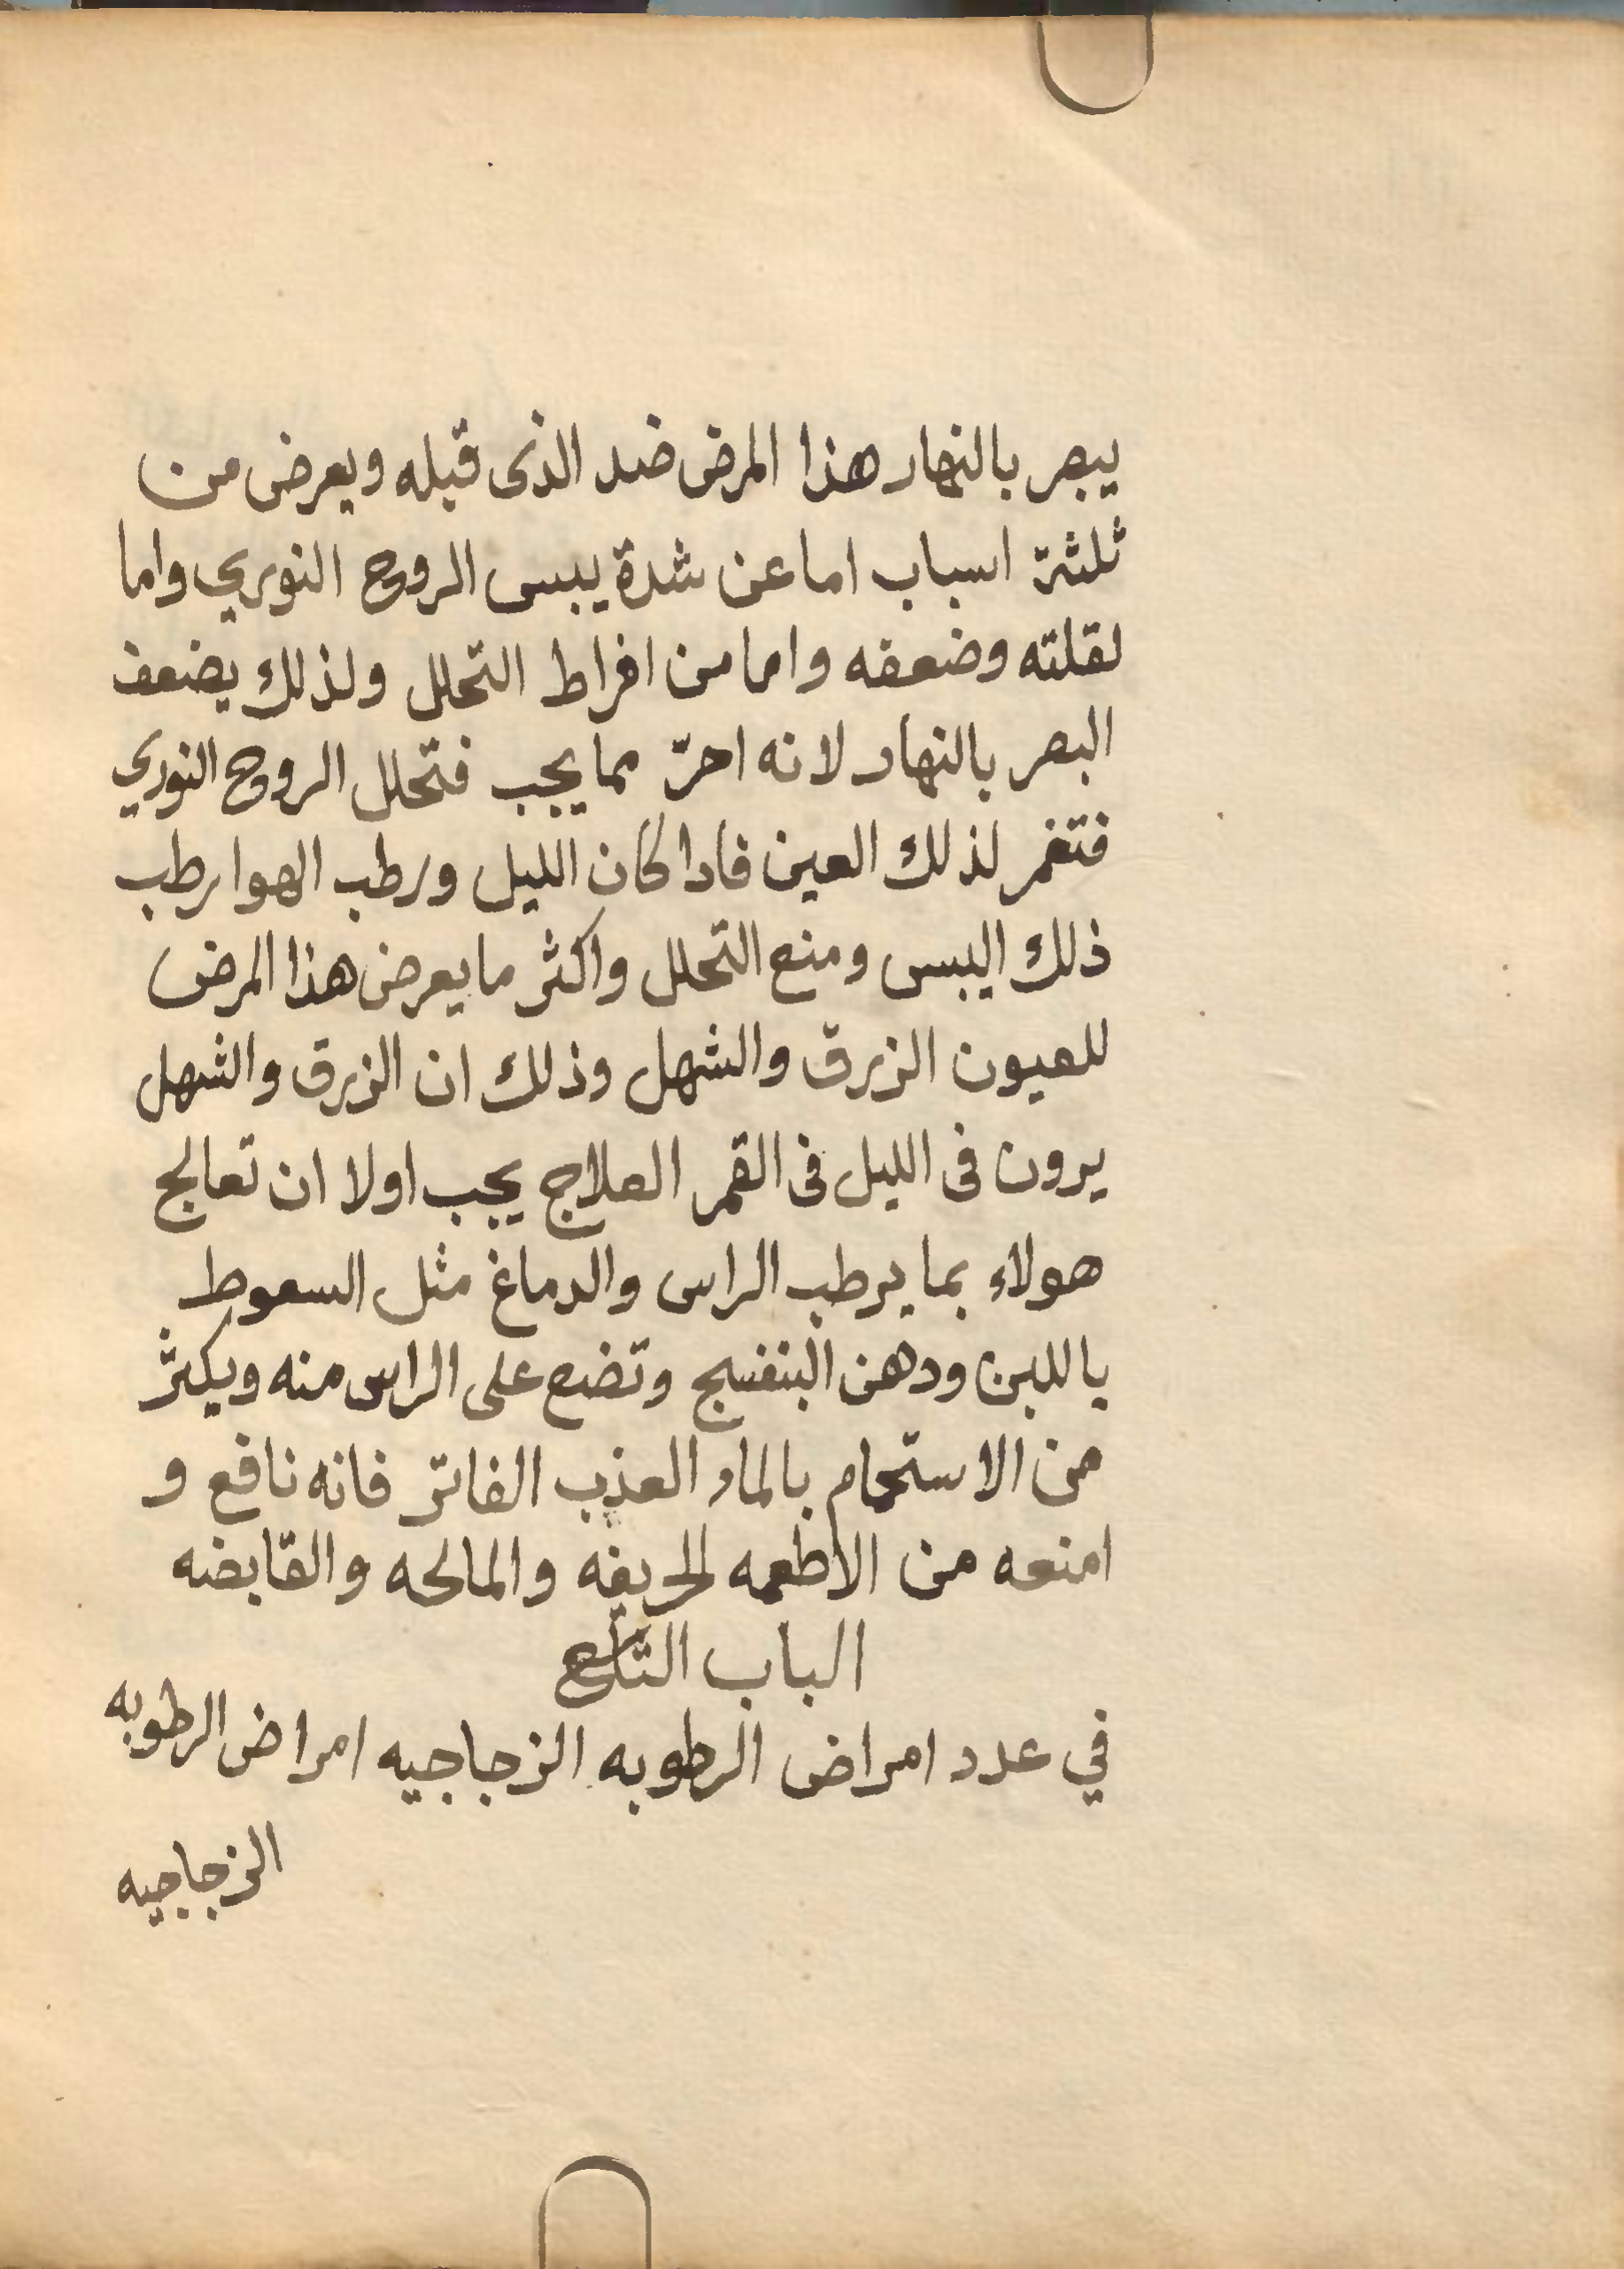 يبصر بالنهار هذا المرض ضد الذى قبله ويعرض من
ثلثة اسباب اما عن شدة يبس الروح النوري واما
لقلته وضعفه واما من افراط التحلل ولذلك يضعف
البصر بالنهار لانه احرّ مما يجب فتحلل الروح النوري
فتغمر لذلك العين فاذا كان الليل ورطب الهوا رطب
ذلك اليبس ومنع التحلل واكثر ما يعرض هذا المرض
للعيون الزرق والشهل وذلك ان الزرق والشهل
يرون فى الليل فى القمر العلاج يجب اولا ان تعالج
هولاء بما يرطب الراس والدماغ مثل السعوط
باللبن ودهن البنفسج وتضع على الراس منه ويكثر
من الاستحمام بالماء العذب الفاتر فانه نافع و
امنعه من الاطعمه الحريفه والمالحه والقابضه
الباب التاسع
في عدد امراض الرطوبه الزجاجيه امراض الرطوبه
الزجاجيه